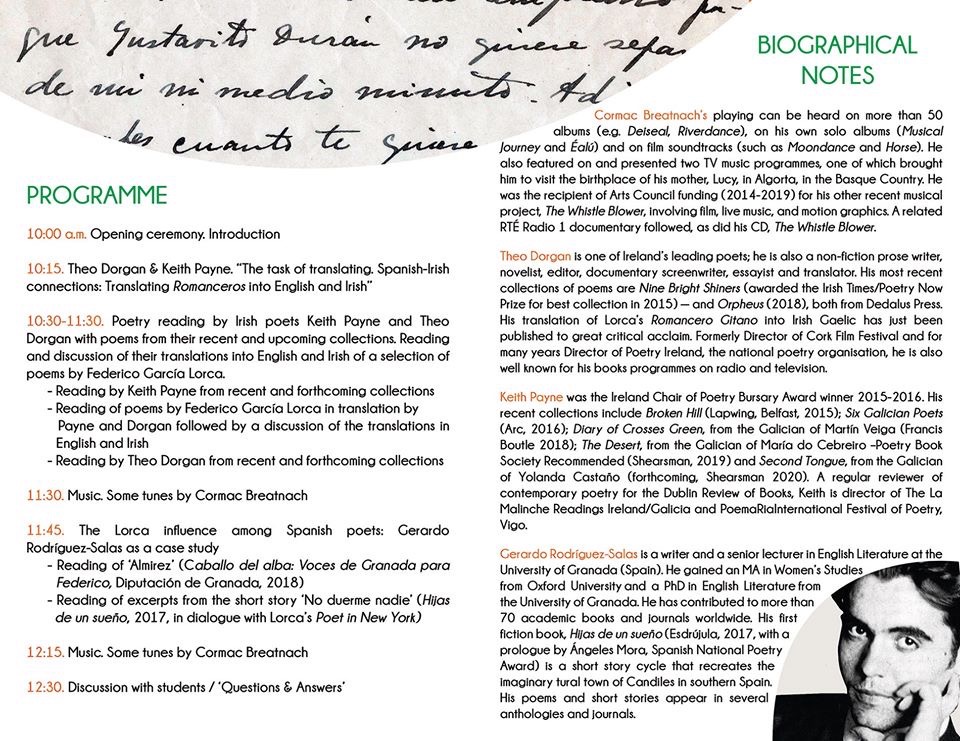 que Gustavito Durán no quiere sepa
de mi ni medio minuto. Ad
cuanto te quiere
PROGRAMME
10:00 a.m. Opening ceremony. Introduction
10:15. Theo Dorgan & Keith Payne. “The task of translating. Spanish-Irish
connections: Translating Romanceros into English and Irish”
10:30-11:30. Poetry reading by Irish poets Keith Payne and Theo
Dorgan with poems from their recent and upcoming collections. Reading
and discussion of their translations into English and Irish of a selection of
poems by Federico García Lorca.
- Reading by Keith Payne from recent and forthcoming collections
- Reading of poems by Federico García Lorca in translation by
Payne and Dorgan followed by a discussion of the translations in
English and Irish
- Reading by Theo Dorgan from recent and forthcoming collections
11:30. Music. Some tunes by Cormac Breatnach
11:45. The Lorca influence among Spanish poets: Gerardo
Rodríguez-Salas as a case study
- Reading of ‘Almirez’ (Caballo del alba: Voces de Granada para
Federico, Diputación de Granada, 2018)
- Reading of excerpts from the short story ‘No duerme nadie’ (Hijas
de un sueño, 2017, in dialogue with Lorca’s Poet in New York)
12:15. Music. Some tunes by Cormac Breatnach
12:30. Discussion with students / ‘Questions & Answers’
BIOGRAPHICAL
NOTES
Cormac Breatnach’s playing can be heard on more than 50
albums (e.g. Deiseal, Riverdance), on his own solo albums (Musical
Journey and Éalú) and on film soundtracks (such as Moondance and Horse). He
also featured on and presented two TV music programmes, one of which brought
him to visit the birthplace of his mother, Lucy, in Algorta, in the Basque Country. He
was the recipient of Arts Council funding (2014-2019) for his other recent musical
project, The Whistle Blower, involving film, live music, and motion graphics. A related
RTÉ Radio 1 documentary followed, as did his CD, The Whistle Blower.
Theo Dorgan is one of Ireland’s leading poets; he is also a non-fiction prose writer,
novelist, editor, documentary screenwriter, essayist and translator. His most recent
collections of poems are Nine Bright Shiners (awarded the Irish Times/Poetry Now
Prize for best collection in 2015) — and Orpheus (2018), both from Dedalus Press.
His translation of Lorca’s Romancero Gitano into Irish Gaelic has just been
published to great critical acclaim. Formerly Director of Cork Film Festival and for
many years Director of Poetry Ireland, the national poetry organisation, he is also
well known for his books programmes on radio and television.
Keith Payne was the Ireland Chair of Poetry Bursary Award winner 2015-2016. His
recent collections include Broken Hill (Lapwing, Belfast, 2015); Six Galician Poets
(Arc, 2016); Diary of Crosses Green, from the Galician of Martín Veiga (Francis
Boutle 2018); The Desert, from the Galician of María do Cebreiro –Poetry Book
Society Recommended (Shearsman, 2019) and Second Tongue, from the Galician
of Yolanda Castaño (forthcoming, Shearsman 2020). A regular reviewer of
contemporary poetry for the Dublin Review of Books, Keith is director of The La
Malinche Readings Ireland/Galicia and PoemaRiaInternational Festival of Poetry,
Vigo.
Gerardo Rodríguez-Salas is a writer and a senior lecturer in English Literature at the
University of Granada (Spain). He gained an MA in Women’s Studies
from Oxford University and a PhD in English Literature from
the University of Granada. He has contributed to more than
70 academic books and journals worldwide. His first
fiction book, Hijas de un sueño (Esdrújula, 2017, with a
prologue by Ángeles Mora, Spanish National Poetry
Award) is a short story cycle that recreates the
imaginary tural town of Candiles in southern Spain.
His poems and short stories appear in several
anthologies and journals.